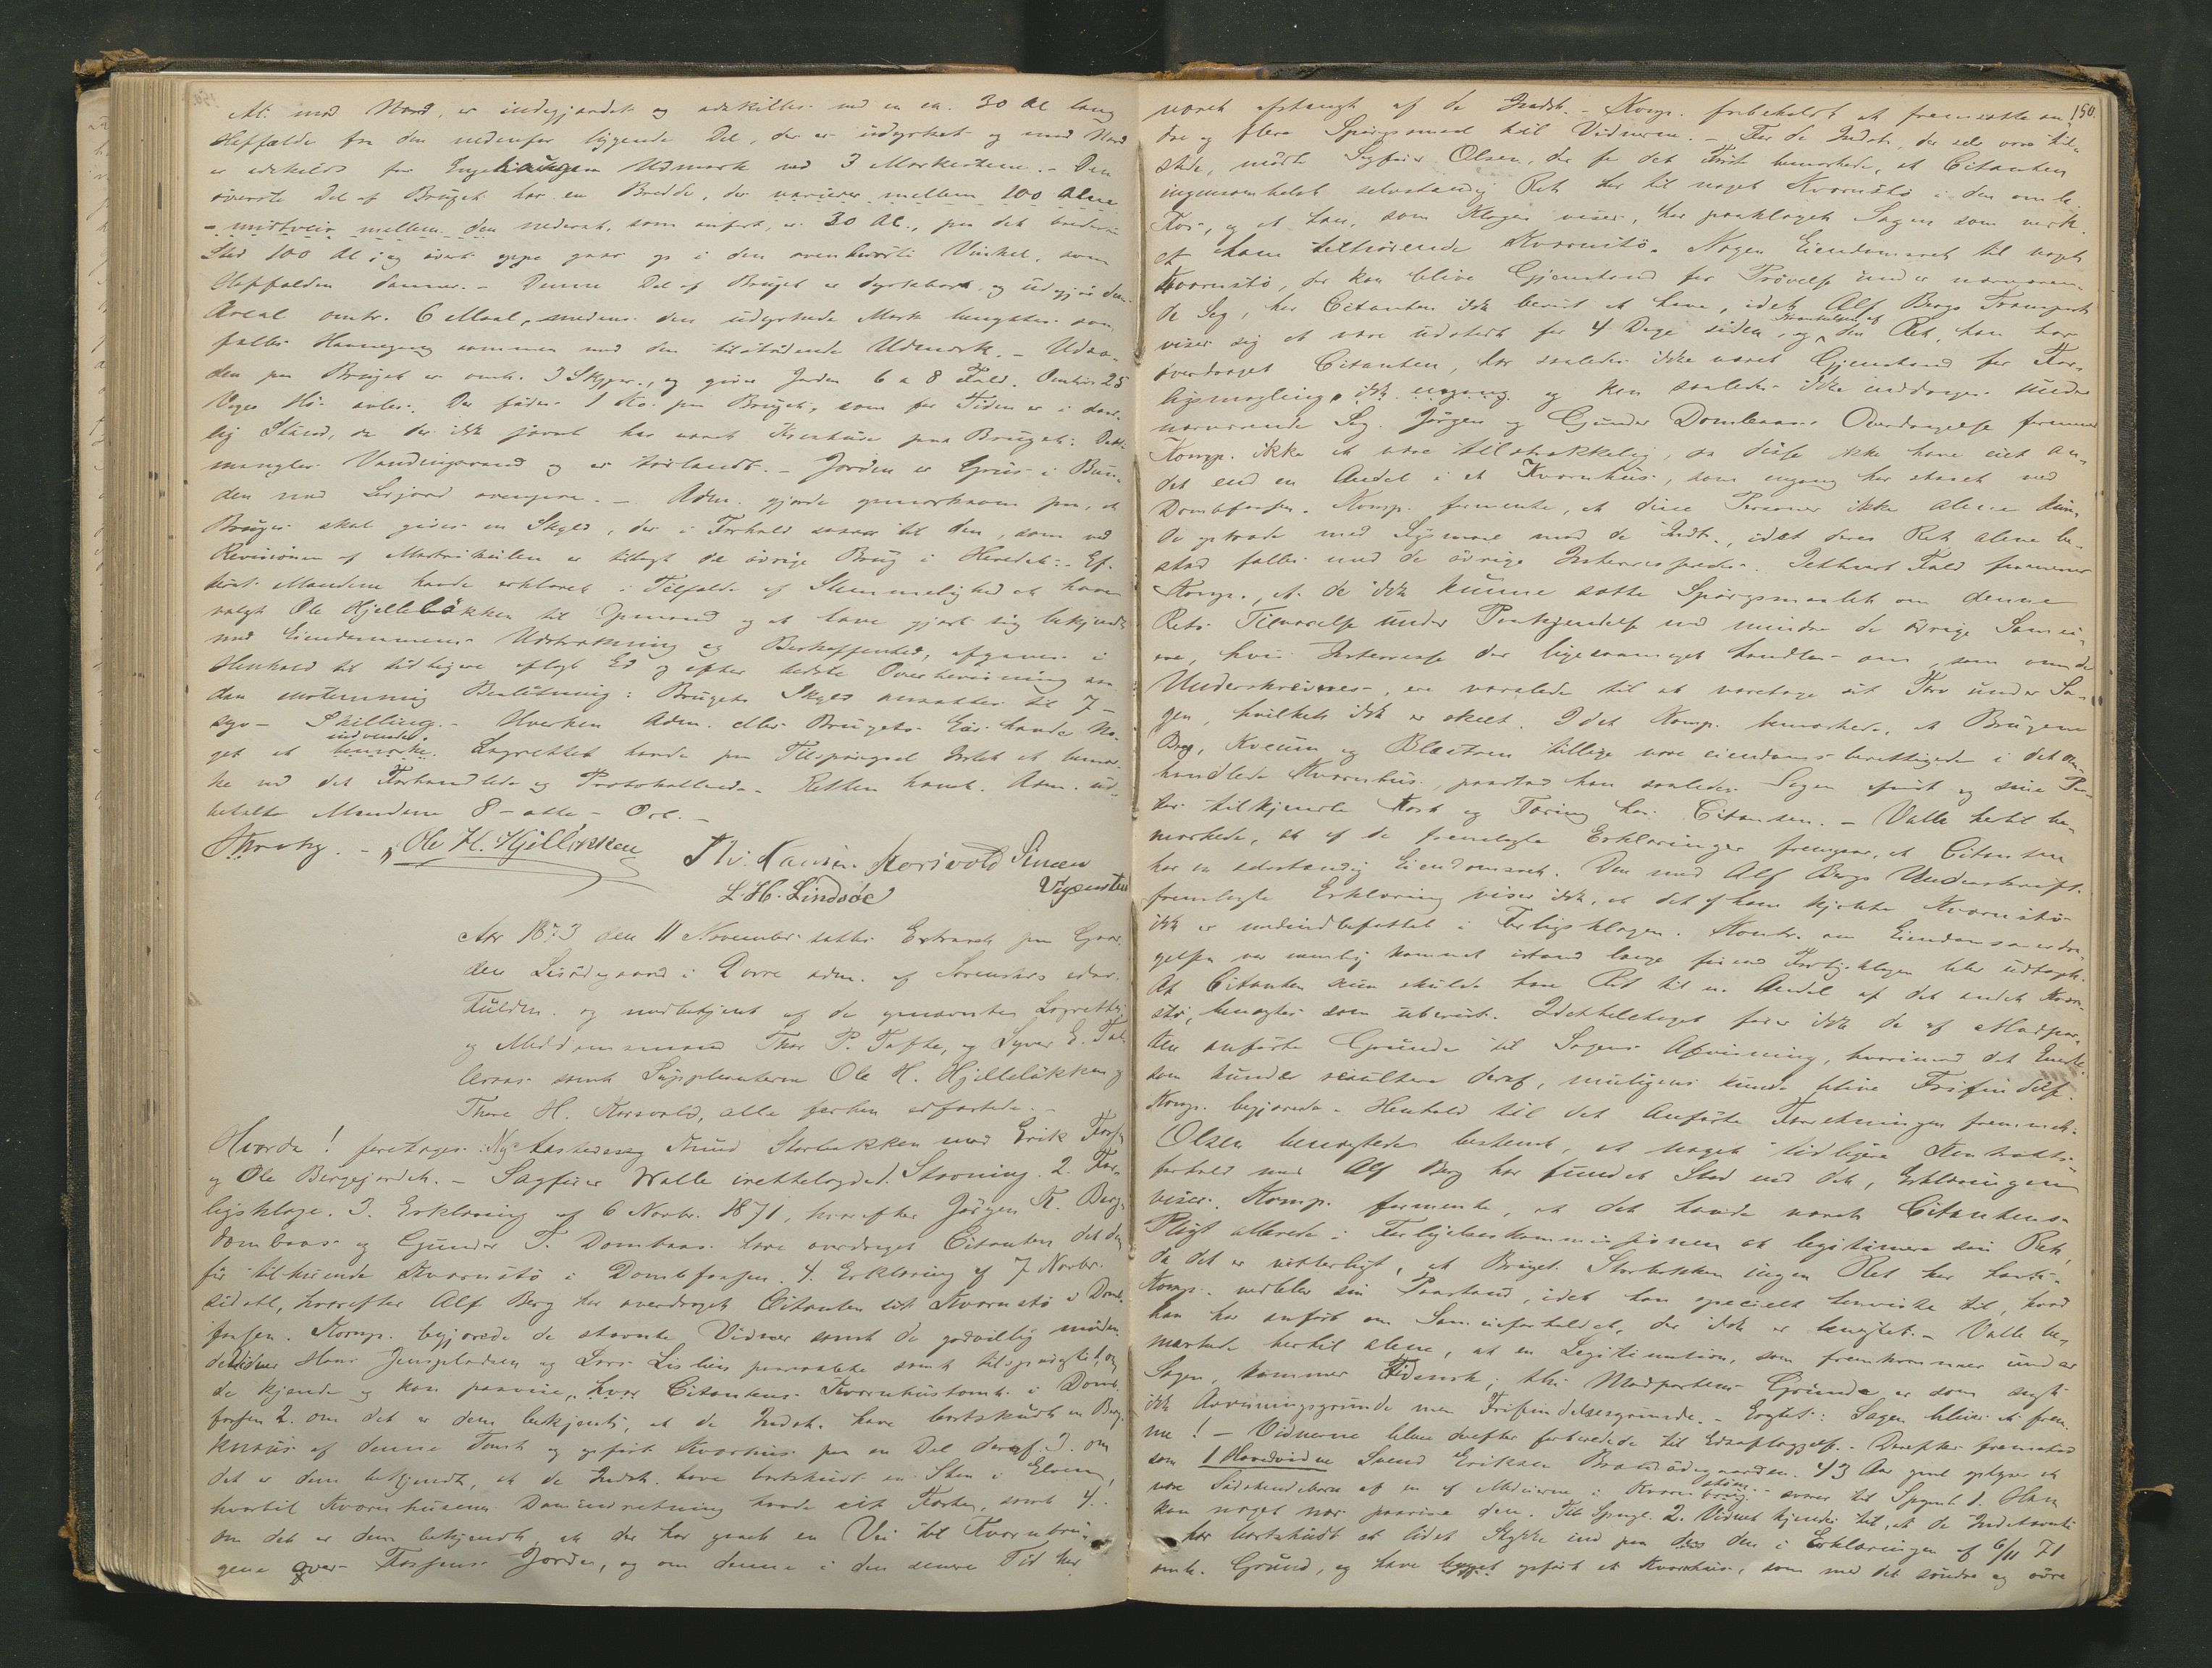 Al. mod Nord, er indgjærdet og adskilles ved en ca. 30 Al lang
Heffælde fra den nedenfor liggende Del, der er udyrket og mod Nord
er adskilt fra Udmark ved 3 Markestene. - Den
øverste Del af Bruget har en Bredde, der varierer mellem 100 Alne
- midtveis mellem den nederst, som anført, er 30 Al., paa det bredeste
Sted 100 Al; og øverst oppe gaar op i den Vinkel, som
dannes. - Denne Del af Bruget er dyrkbar og udgjør den
Areal omtr. 6 Maal, medens den udyrkede Mark benyttes som
fælles Havnegang sammen med den tilstødende Udmark. - Udsæ-
den paa Bruget er omtr. 3 Skjpr., og giver Jorden 6 a 8 Fold. Omtrent 25
Voger Hø avles. Der fødes 1 Ko paa Bruget, som for Tiden er i daar-
lig Stand, da der ikke jævnt har været paa Bruget. Dette
mangler Vandingsvand og er tørlændt. - Jorden er Grus i Bun-
den med Lerjord ovenpaa. - Adm. gjorde opmærksom paa, at
Bruget skal gives en Skyld, der i Forhold svarer til den, som ved
Revisionen af Matrikulen er tillagt de øvrige Brug i Herredet. - Ef-
terat Mændene havde erklæret i Tilfælde af Stemmelighed at have
valgt Ole Hjelleløkken til Opmand og at have gjort sig bekjendt
med Eiendommens Udstrækning og Beskaffenhed, afgaves i
Henhold til tidligere aflagt Ed og efter bedste Overbevisning saa-
dan enstemmig Beslutning: Brugets Skyld ansættes til 7 -
syv - Skilling. - Hverken Adm. eller Brugets Eier havde No-
get at indvende. Lagrettet havde paa Tilspørgsel Intet at bemær-
ke ved det Forhandlede og Protokollerede. Retten hævet. Adm. ud-
betalte Mændene 8 - otte - Ort. -
Ole H. Hjelløkken Korsvold Simen
L. H. Lindsøe
Aar 1873 den 11 November sattes Extraret paa Gaar-
den i Dovre adm. af Sorenskriver
og medbetjent af de opnævnte Lagrettes
og Meddomsmænd Thor P. Tofte, og Syver E.
samt Suppleanterne Ole H. Hjelleløkken og
Thore H. Korsvold, alle forhen edfæstede. -
Hvorda! foretages: Nye Aastedssag Knud Storløkken mod Erik
og Ole Bergsgjordet. - Sagfører Walle irettelagde 1. Stævning. 2. For-
ligsklage. 3. Erklæring af 6 Novbr. 1871, hvorefter Jørgen K. Berg-
Dombaas og Gunder T. Dombaas have overdraget Citanten det dem
før tilhørende Kværnstø i Dombfossen. 4. Erklæring af 7 Novbr.
sidstl., hvorefter Alf Berg har overdraget Citanten sit Kværnstø i Domb-
fossen. Komp. begjærede de stævnte Vidner samt de godvillig møden-
de Vidner Hans og Lars paaraabte samt tilspurgte: 1, om
de kjende og kan paavise, hvor Citantens Kværnhustomt i Domb-
fossen 2. om det er dem bekjendt, at de Indst. have bortskudt en Berg-
knaus af denne Tomt og opført Kværnhus paa en Del deraf. 3. om
det er dem bekjendt, at de Indst. have bortskudt en Sten i Elven,
hvortil Kværnhusenes Damindretning havde sit Fæste, samt 4.
om det er dem bekjendt, at der har gaaet en Vei til Kværnbru-
gene over Fossens Jorder, og om denne i den senere Tid har
150.
været afstængt af de Indst. - Komp. forbeholdt at fremsætte an-
dre og flere Spørgsmaal til Vidnerne. - For de Indst., der selv vare til-
stede, mødte Sagfører Olsen, der for det Første bemærkede, at Citanten
ingensomhelst selvstændig Ret har til noget Kværnstø i den omhl.
Fos, og at han, som Klagen viser, har paaklaget Sagen som
et ham tilhørende Kværnstø. Nogen Eiendomsret til noget
Kværnstø, der kan blive Gjenstand for Prøvelse under nærværen-
de Sag, har Citanten ikke bevist at have, idet Alf Bergs Transport
viser sig at være udstedt for 4 Dage siden, og Krænkelsen af den Ret, han har
overdraget Citanten, har saaledes ikke været Gjenstand for For-
ligsmægling, ikke engang og kan saaledes ikke inddrages under
nærværende Sag. Jørgen og Gunder Dombaas's Overdragelse formener
Komp. ikke at være tilstrækkelig, da disse ikke have eiet an-
det end en Andel i et Kværnhus, som engang har staaet ved
Dombfossen. Komp. formente, at disse Personer ikke alene kun-
de optræde med Søgsmaal mod de Indst., idet deres Ret alene be-
stod fælles med de øvrige Interessenter. Iethvert Fald formener
Komp., at de ikke kunne sætte Spørgsmaalet om denne
Rets Tilværelse under Paakjendelse med mindre de øvrige Samei-
ere, hvis Interesse der ligesaameget handles om, som om de
Underskrevnes, ere varslede til at varetage sit Tarv under Sa-
gen, hvilket ikke er skeet. Idet Komp. bemærkede, at Brugene
Berg, Kveum og tillige vare eiendomsberettigede i det om-
handlede Kværnhus, paastod han saaledes Sagen afvist og sine Par-
ter tilkjendte Kost og Tæring hos Citanten. - Valle hertil be-
mærkede, at af de fremlagte Erklæringer fremgaar, at Citanten
har en selvstændig Eiendomsret. Den med Alf Bergs Underskrift
fremlagte Erklæring viser ikke, at det af ham kjøbte Kværnstø
ikke er medindbefattet i Forligsklagen. Kontr. om Eiendomsoverdra-
gelsen var nemlig kommet istand længe førend Forligsklagen blev udtagt.
At Citanten kun skulde have Ret til en Andel af det andet Kværn-
stø, benægtes som ubevist. Idethele taget fører ikke de af Modpar-
ten anførte Grunde til Sagens Afvisning, hvorimod det Eneste
som kunde resultere deraf, muligens kunde blive Frifindelse.
Komp. begjærede i Henhold til det Anførte Forretningen fremmet.
Olsen benægtede bestemt, at noget tidligere Kontrakts-
forhold med Alf Berg har fundet Sted end det, Erklæringen
viser. Komp. formente, at det havde været Citantens
Pligt allerede i Forligelseskommissionen at legitimere sin Ret,
da det er vitterligt, at Bruget Storløkken ingen Ret har havt. -
Komp. vedblev sin Paastand, idet han specielt henviste til, hvad
han har anført om Sameieforholdet, der ikke er benægtet. - Valle be-
mærkede hertil alene, at en Legitimation, som fremkommer under
Sagen, kommer tidsnok; thi Modpartens Grunde er som sagt
ikke Afvisningsgrunde men Frifindelsesgrunde. - Eragtet: Sagen bliver at frem-
me! - Vidnerne bleve derefter forberedede til Edsaflæggelse. - Derefter fremstod
som 1 Hovedvidne Svend Eriksen 43 Aar gml oplyser at
være Sødskendebarn af en af Medeierne i svarer til Spgm. 1. Han
kan noget nær paavise den. Til Spmgl. 2. Vidnet kjender til, at de Indstævnte
har bortskudt et lidet Stykke ind paa den i Erklæringen af 6/11 71
omh. Grund, og have opført et Kværnhus, som med det søndre og øvre